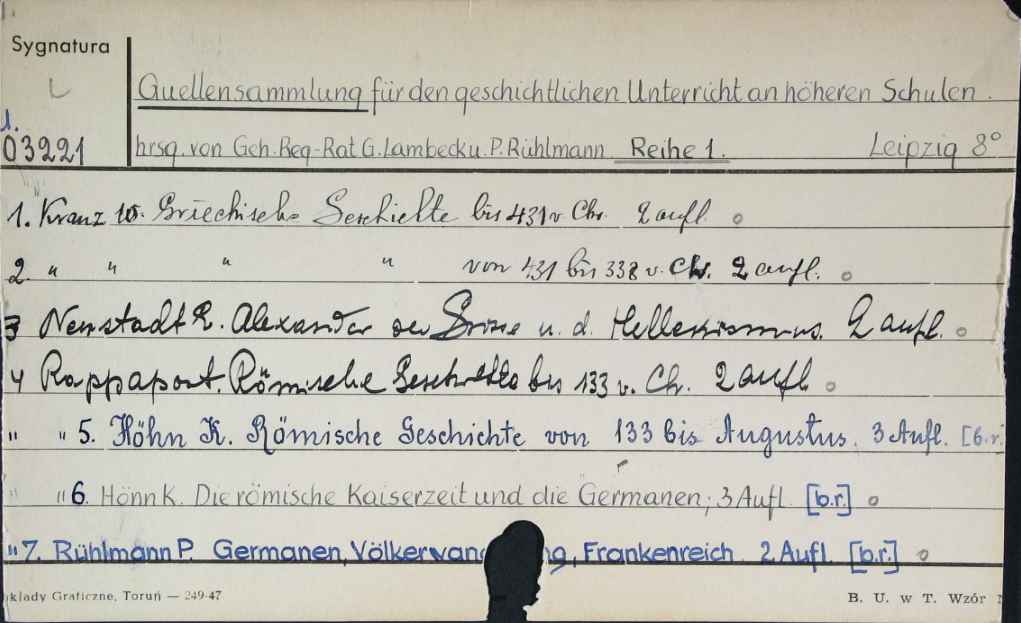 Sygnatura
L
Quellensammlung für den geschichtlichen Unterricht an höheren Schulen.
1.
03221
hrsg. von Geh. Reg-Rat G. Lambeck u. P. Rühlmann Reihe 1. Leipzig 8°
1. Kranz W. Griechische Geschichte bis 431 v. Chr. 2 aufl. o
2. " " " " von 431 bis 338 v. Chr. 2 aufl. o
3 Neustadt E. Alexander der Grosse u. d. Hellenismus. 2 aufl. o
4 Rappaport. Römische Geschichte bis 133 v. Ch. 2 aufl o
" " 5. Höhn K. Römische Geschichte von 133 bis Augustus. 3 Aufl. [b.r.
" " 6. Hönn K. Die römische Kaiserzeit und die Germanen; 3 Aufl. [b.r.] o
" 7. Rühlmann P. Germanen, Völkerwan g, Frankenreich 2 Aufl. [b.r.] o
kłady Graficzne, Toruń — 249-47 B. U. w T. Wzór